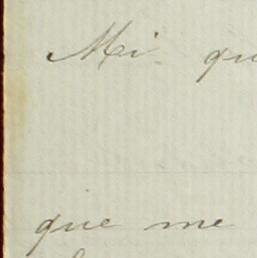 Mi qu
que me